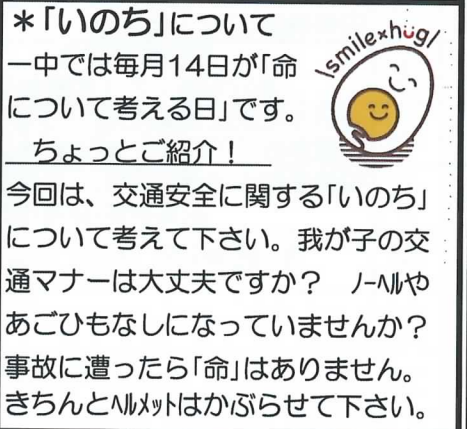 ＊「いのち」について
\smile×hug/
一中では毎月14日が「命
について考える日」です。
ちょっとご紹介！
今回は、交通安全に関する「いのち」
について考えて下さい。我が子の交
通マナーは大丈夫ですか？　ﾉｰﾍﾙや
あごひもなしになっていませんか？
事故に遭ったら「命」はありません。
きちんとﾍﾙﾒｯﾄはかぶらせて下さい。